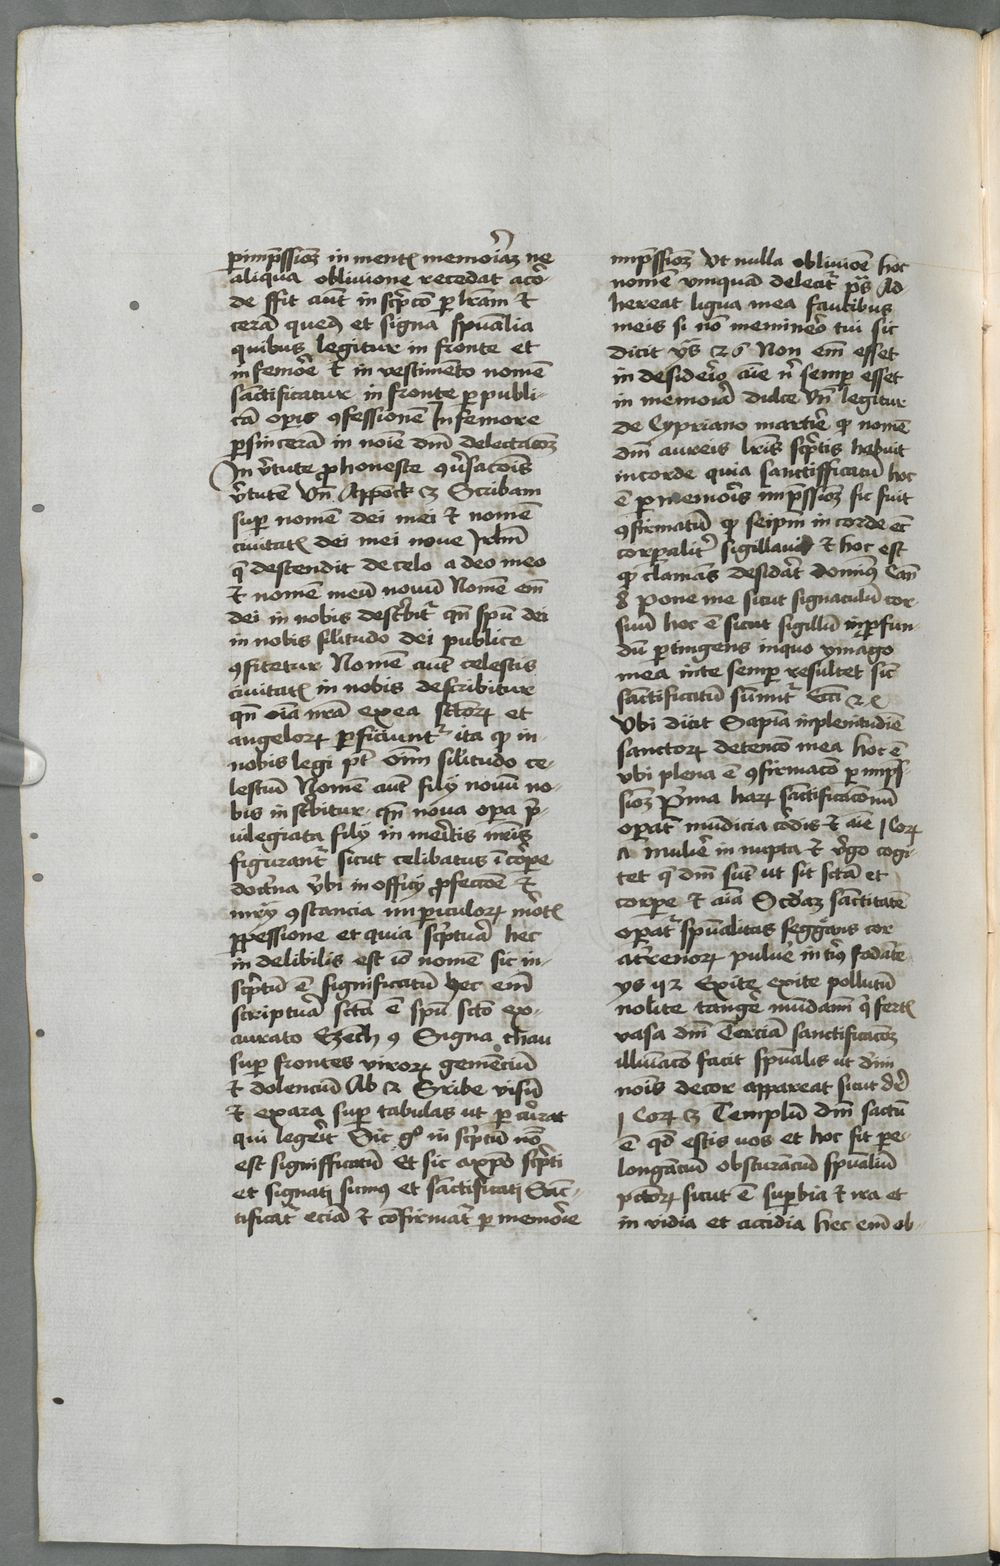 pimp̄ssioꝫ in mentꝭ memoriaꝫ ne
aliqua oblivione recedat a cor-
de ffit aut̄ in scp̄tōe ꝑ lr̄am et
cerā et signa spūalia
quibus legitur in fronte et
in femōre et in vestimento nomē
sanctificatur in fronte ꝑ publi-
cā oꝑis ꝯfessionem In femore
ꝑ sincerā in noīe dn̄i delectacōꝫ
In v̓tute ꝓ honeste ꝯv̓sacōnis
v̓tutē Vn̄ Appock̄ 3 Scribam
suꝑ nomē dei mei et nomē
civitatꝭ dei mei nove Jrlm̄
q̄ descendit de celo a deo meo
et nomen meū novū Nomē em̄
dei in nobis descbit̄ qn̄ spū dei
in nobis sil̄itudo dei publice
ꝯfitetur Nomē aut̄ celestis
civitatꝭ in nobis describitur
qn̄ oīa nr̄a ex ea sc̄toꝝ et
angeloꝝ ꝑficiunt̄ ita ꝙ in
nobis legi pt̄ oīm sil̄itudo ce-
lestiū Nomē aut̄ filij novū no-
bis inscbitur qn̄ nova oꝑa p̓-
vilegiata filij in mer̓itis nr̄is
figurant̄ sicut celibatus ī cor̓pe
doctr̓na v̓bi in officij ꝓfectōe et
mr̄ij ꝯstancia in ꝑiculoꝝ mortꝭ
ꝑpessione et quia scptura hec
in delibilis est iō nomē sic in-
scp̄tū ē significatū hec em̄
scriptur̓a sctā ē spū scto ex-
aurato Ezech 9 Signa thau
suꝑ frontes viroꝝ gemēciū
et dolenciū Ab 2 Scribe visū
et exara suꝑ tabulas ut ꝑcur̓at
qui legēit Sic g̊ inscp̄tū nō
est significatū Et sic a xpō scp̄ti
et signati sumꝰ et sanctificati Sanc-
tificat̄ eciā et confirmat̄ ꝑ memor̓ie
imp̄ssioꝫ Ut nulla oblivioē hoc
nomē vmquā deleat̄ pš Ad
hereat ligua mea faucibus
meis si nō meminero tui sic
dicit yš 26 Non em̄ esset
in desiderio aīe n̄ semꝑ esset
in memoriā dulce Vn̄ legitur
de Cypriano martire ꝙ nomē
dn̄i aureis lr̄is scptis habuit
in corde quia sanctifficatū hoc
ē ꝑ memor̓is imp̄ssioꝫ sic fuit
ꝯfirmatū ꝙ seipm̄ in corde et
corꝑalit̄ sigillavit et hoc est
ꝙ clamās desiderat dominꝰ Can̄
8 Pone me sicut signaculū cor
suū hoc ē sicut sigillū in ꝓfun-
dū ꝑtingens in quo ymago
mea in te semꝑ resultet sic
sanctificatū sumit̄ Ecci 24
Ubi dicit Sapīa in plenitudīe
sanctoꝝ detencō mea hoc ē
vbi plena ē ꝯfirmacō ꝑ imp̄s-
sioꝫ P̓ma haꝝ sanctificacōnū
oꝑat̄ mundicia cordis et aīe 1 Coꝝ
Λ Mulier in nupta et v̓go cogi-
tet q̄ dn̄i sūt ut sit sctā et
corꝑe et aīa Scd̓aꝫ sanctitatē
oꝑat̄ spūalitas seggans cor
a t̓renoꝝ pulu̓e
ys 52 Exite exite pollutū
nolite tangere mūdamī q̓ fertꝭ
vasa dn̄i Terciā sanctificacōꝫ
illūiacō facit spūalis ut divini
nōis decor appareat sicut dr̄
1 Coꝝ 3 Templū dn̄i sactū
ē qd̓ estis uos et hoc fit ꝑ e-
longacōnū obscuracōnū spūaliū
pctōꝝ sicut ē suꝑbia et ira et
in vidia et accidia hec em̄ ob-